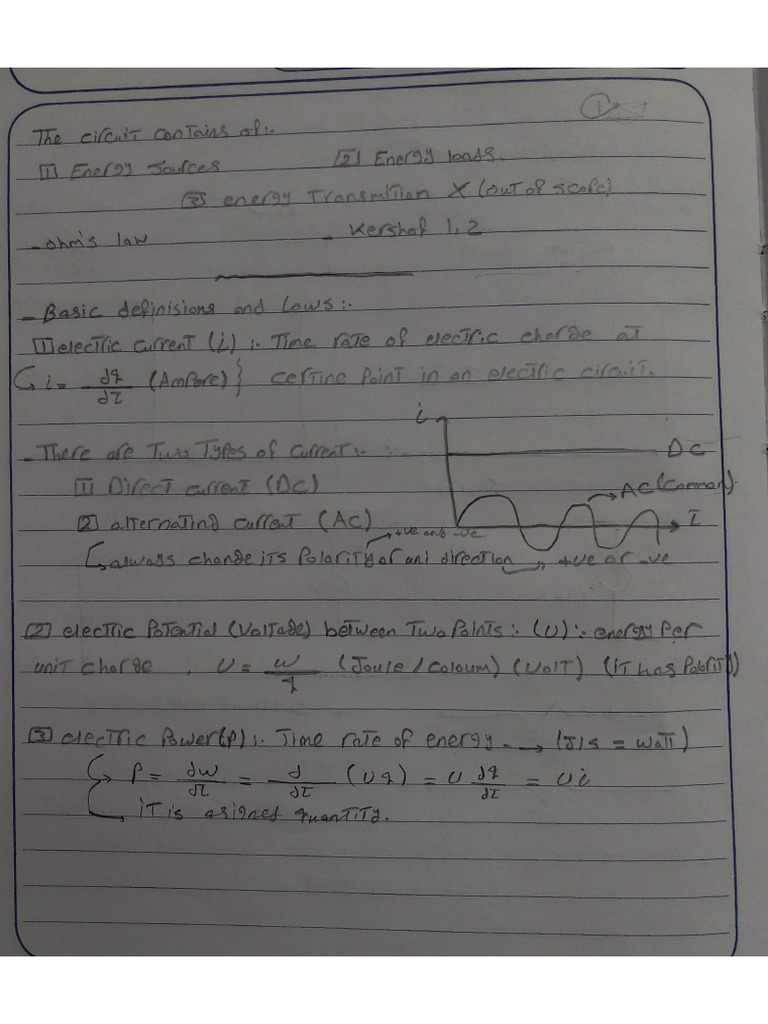 1
The circuit contains of:-
[1] Energy sources [2] Energy loads.
[3] energy Transmition X (out of scope)
- ohm's law - Kershof 1,2
- Basic definisions and Laws:-
[1] electric current (i) :- Time rate of electric charge at
i = dq/dt (Ampere) } certine point in an electric circuit.
i
- There are Two Types of current:- DC
[1] Direct current (DC) AC (Common)
[2] alternating current (AC) +ve and -ve t
always change its Polarity or uni direction +ve or -ve
[2] electric Potential (Voltage) between Two Points:- (U) :- energy Per
unit charge , U = w/q (Joule / Coloum) (Volt) (it has Polarity)
[3] electric Power (P) :- Time rate of energy. → (J/s = watt)
P = dw/dt = d/dt (Uq) = U dq/dt = Ui
it is asigned quantity.